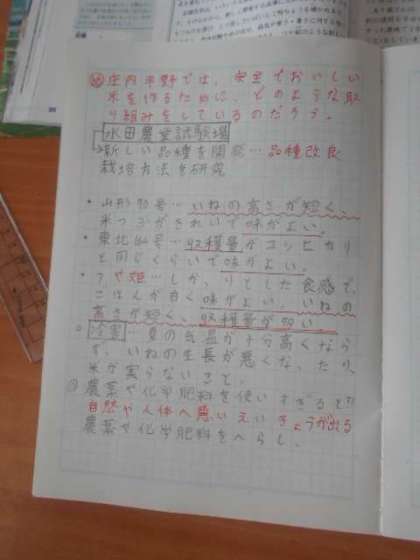 め 庄内平野では、安全でおいしい
米を作るために、どのような取
り組みをしているのだろう。
水田農業試験場
新しい品種を開発…品種改良
栽培方法を研究
・山形90号…いねの高さが短く、
米つぶがきれいで味がよい。
・東北164号…収穫量がコシヒカリ
と同じくらいで味がよい。
しっかりとした食感で、
ごはんが白く味がよい。いねの
高さが短く、収穫量が多い
冷害…夏の気温が十分高くなら
ず、いねの生長が悪くなったり、
米が実らないこと。
農薬や化学肥料を使いすぎると
自然や人体へ悪いえいきょうが出る
農薬や化学肥料をへらし、